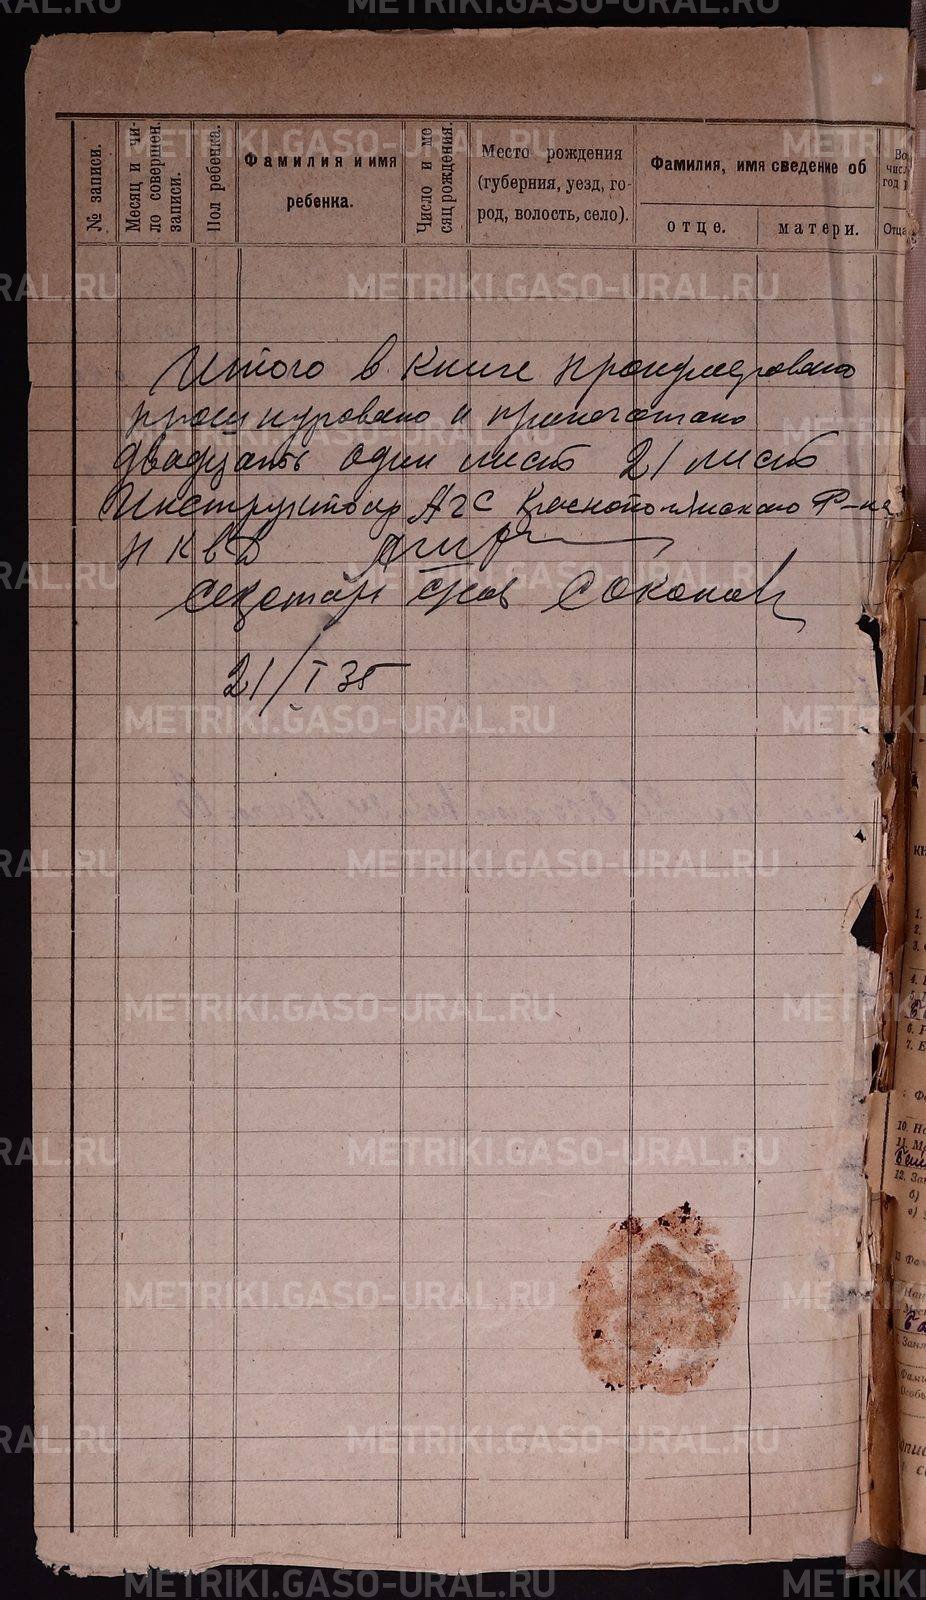 № записи.
Месяц и чи-
ло совершен.
записи.
Пол ребенка.
Фамилия и имя
ребенка.
Число и ме
сяц рождения.
Место рождения
(губерния, уезд, го-
род, волость, село).
Фамилия, имя сведение об
отце.
матери.
Отца
Итого в книге пронумеровано
прошнуровано и припечатано
двадцать один лист 21 лист
Инструктор АГС Краснополянского Р-на
НКВД
Секретарь
21/I 35
METRIKI.GASO-URAL.RU